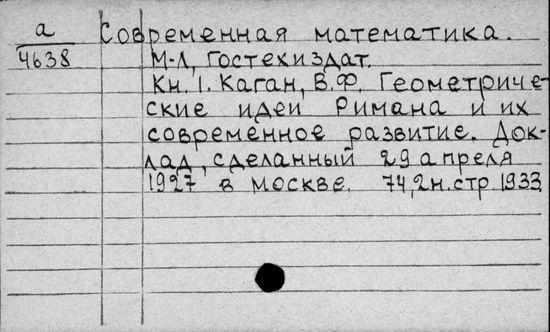 а Современная математика.
4638 М-Л, Гостехиздат.
Кн. 1. Каган, В.Ф. Геометриче-
ские идеи Римана и их
современное развитие. Док-
лад, сделанный 29 апреля
1927 в Москве. 74,2н.стр 1933.